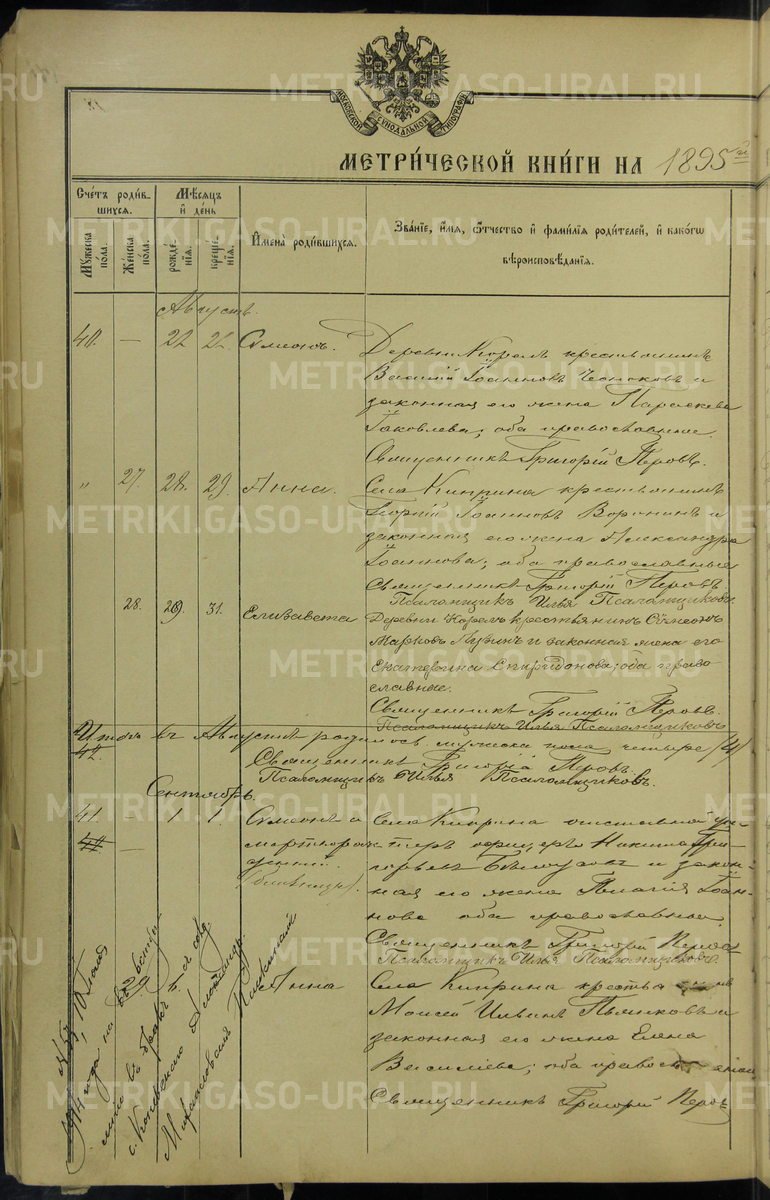 МОСКОВСКОЙ СУНОДАЛЬНОЙ ТИПОГРАФІИ
МЕТРИ́ЧЕСКОЙ КНИ́ГИ НА 1895 й
Сче́тъ роди́в-
шихся.
Му́жеска по́ла.
Же́нска по́ла.
Мѣ́сяцъ
и҆ де́нь
рожде́нїя.
креще́нїя.
И҆мена̀ роди́вшихся.
Зва́нїе, и҆́мя, ѻ҆́тчество и҆ фами́лїя роди́телей, и҆ како́гѡ
вѣроисповѣ́данїя.
Августъ.
40. — 22 22. Симеонъ.
Деревни крестьянинъ
Василій Іоанновъ Чесноковъ и
законная его жена Параскева
Іаковлева; оба православные.
Священникъ Григорій Перовъ.
" 27. 28. 29. Анна.
Села Киприна крестьянинъ
Георгій Іоанновъ Воронинъ и
законная его жена Александра
Іоаннова; оба православные
Священникъ Григорій Перовъ.
Псаломщикъ Илья Псаломщиковъ.
28. 29. 31. Елизавета
Деревни крестьянинъ Симеонъ
Марковъ и законная жена его
Екатерина Спиридонова; оба право-
славные.
Священникъ Григорій Перовъ.
Псаломщикъ Илья Псаломщиковъ
Итого въ Августѣ родилось мужеска пола четыре /4/
Священникъ Григорій Перовъ.
Псаломщикъ Илья Псаломщиковъ.
Сентябрь.
41. — 1. 1. Симеонъ и
мертворож-
денный
(близнецы).
Села Киприна отставной ун-
теръ офицеръ Никита Гри-
горьевъ Бѣлоусовъ и закон-
ная его жена Пелагія Іоан-
нова оба православные.
Священникъ Григорій Перовъ
Псаломщикъ Илья Псаломщиковъ
29. Анна
Села Киприна
Моисей Ильинъ Пьянковъ и
законная его жена Елена
Василіева; оба
Священникъ Григорій Перовъ
10 Іюня
1914 года
въ бракъ
METRIKI.GASO-URAL.RU